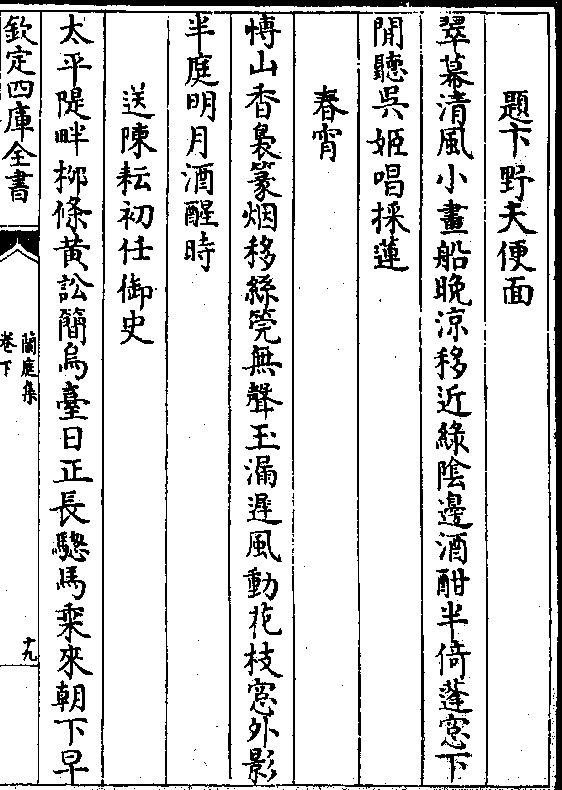 題卞野夫便面
翠幕清風小畫船晚涼移近綠陰邊酒酣半倚蓬窻下
閒聽吳姬唱採蓮
春宵
博山香裊篆烟移絲筦無聲玉漏遲風動花枝窻外影
半庭明月酒醒時
送陳耘初任御史
太平隄畔栁條黄訟簡烏臺日正長驄馬乘來朝下早
欽定四庫全書
蘭庭集
卷下
十九